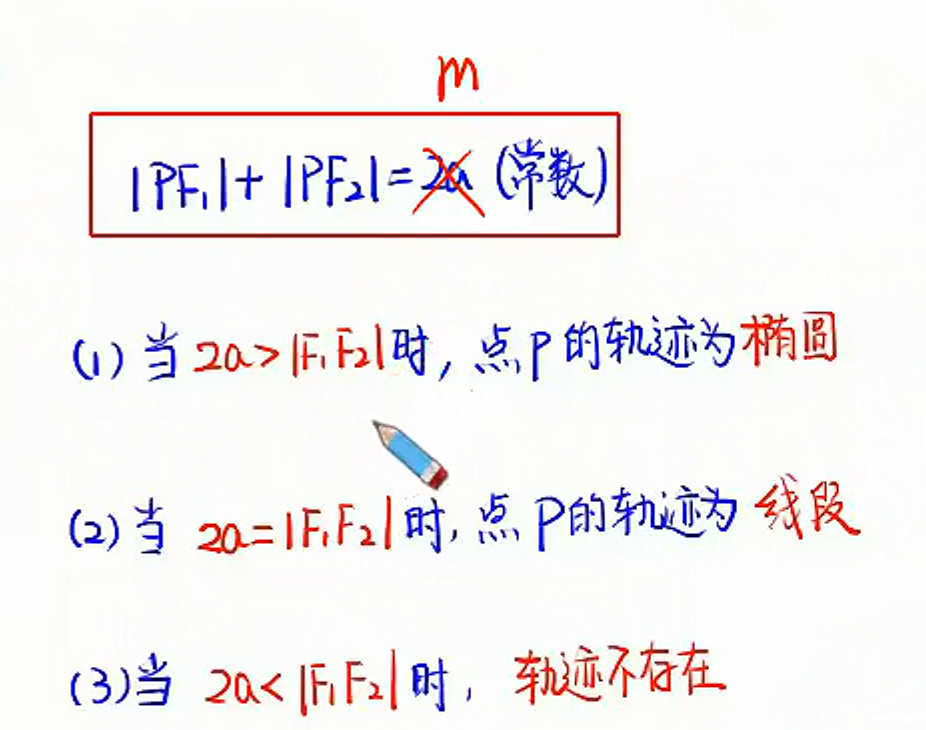 m
|PF₁|+|PF₂|=2a (常数)
(1) 当 2a>|F₁F₂|时, 点P的轨迹为椭圆
(2) 当 2a=|F₁F₂|时, 点P的轨迹为 线段
(3)当 2a<|F₁F₂|时, 轨迹不存在